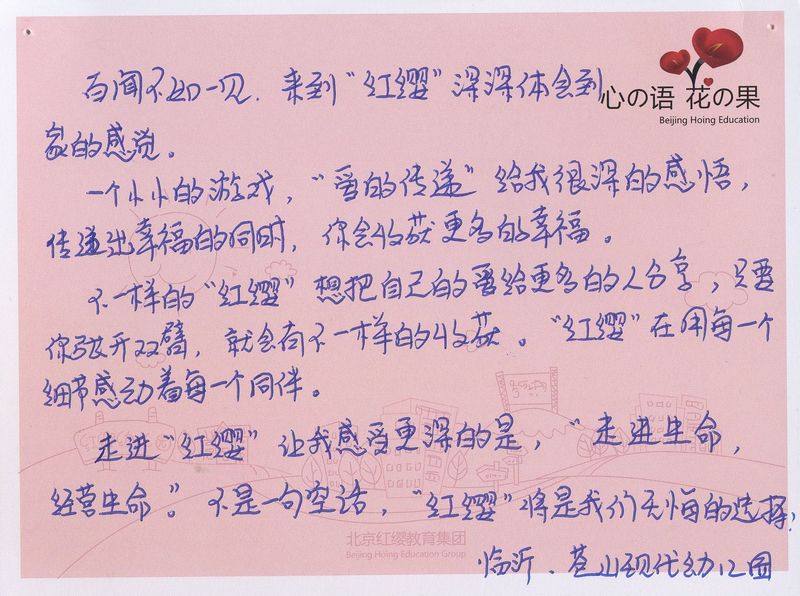 心の语 花の果
Beijing Hoing Education
百闻不如一见.来到“红缨”深深体会到
家的感觉。
一个小小的游戏，“爱的传递”给我很深的感悟，
传递出幸福的同时，你会收获更多的幸福。
不一样的“红缨”想把自己的爱给更多的人分享，只要
你张开双臂，就会有不一样的收获。“红缨”在用每一个
细节感动着每一个同伴。
走进“红缨”让我感受更深的是，“走进生命，
经营生命。”不是一句空话，“红缨”将是我们无悔的选择!
北京红缨教育集团
Beijing Hoing Education Group
临沂.苍山现代幼儿园